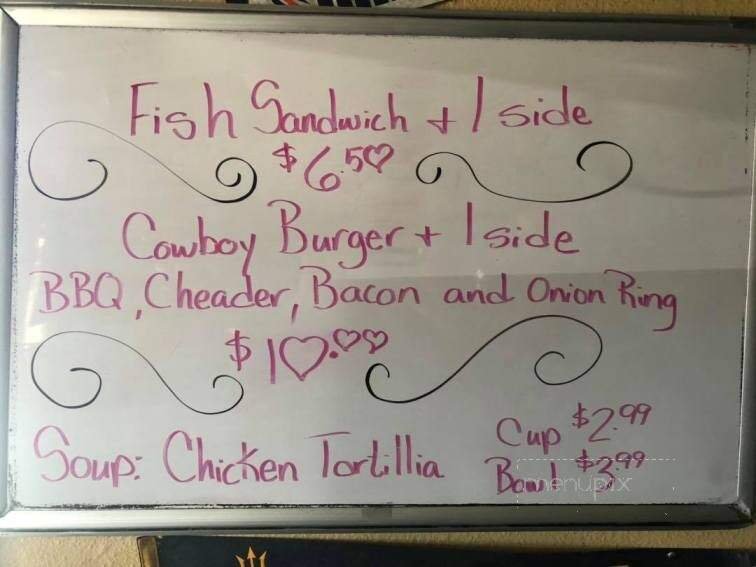 Fish Sandwich + 1 side
$6.50
Cowboy Burger + 1 side
BBQ, Cheader, Bacon and Onion Ring
$10.00
Soup: Chicken Tortillia
Cup $2.99
Bowl $3.99
menupix